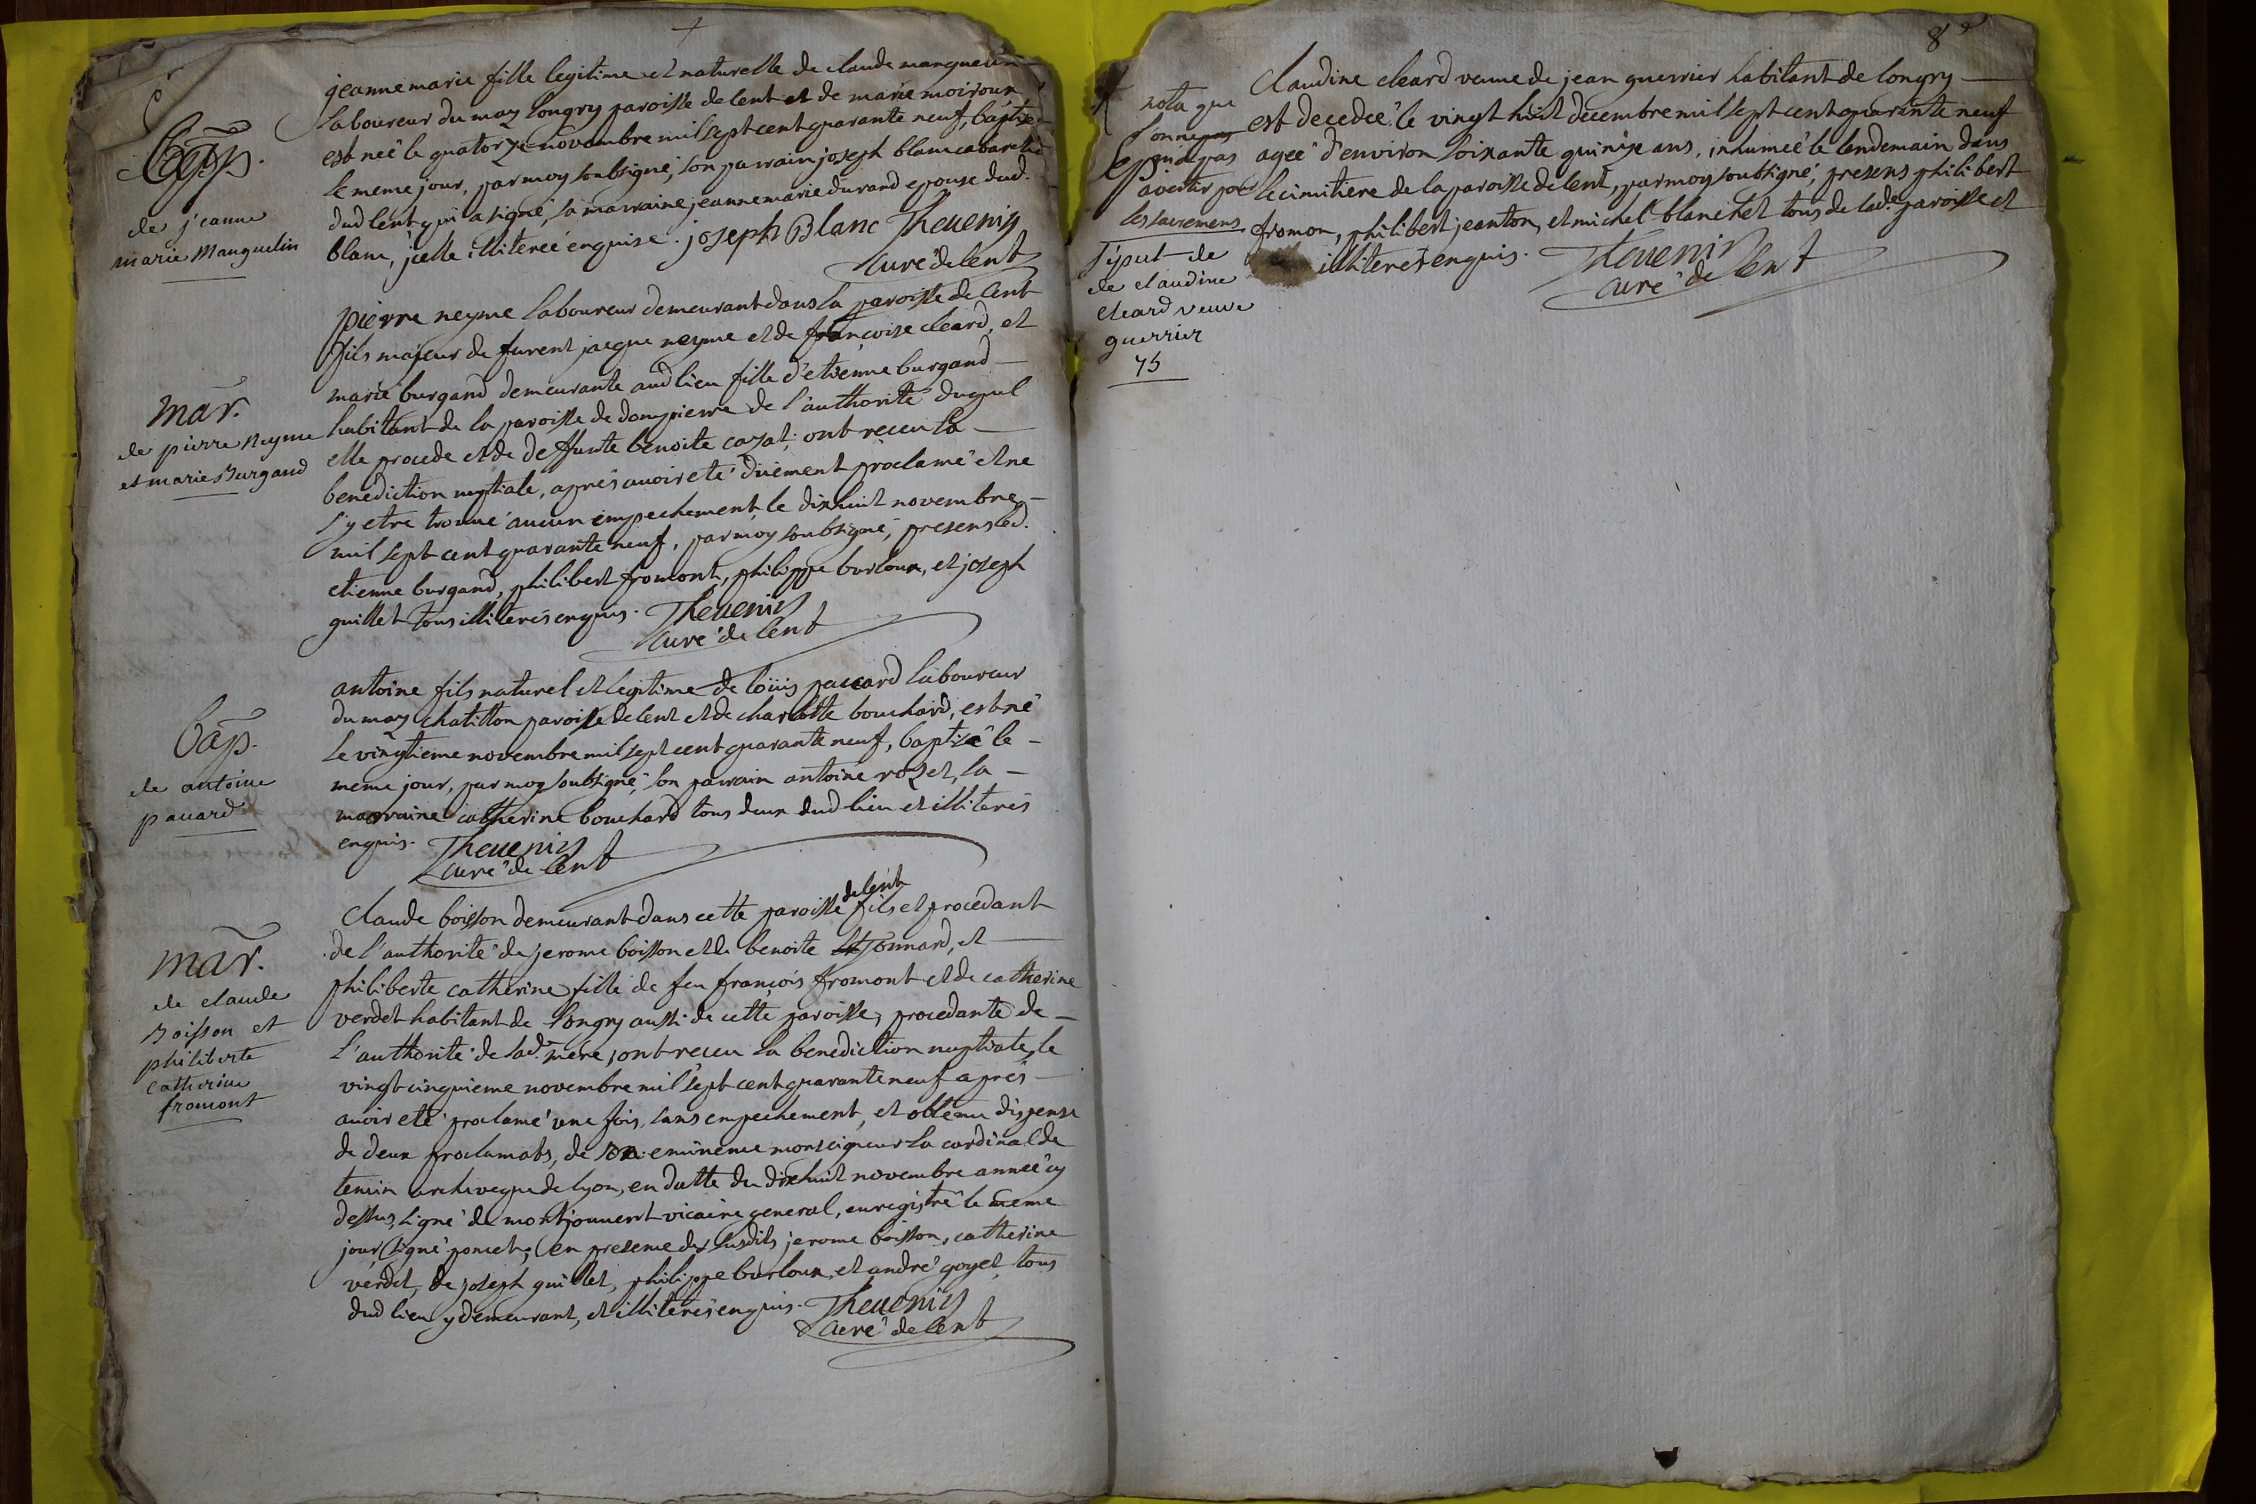 Bap.
de jeanne
marie Manguelin
jeanne marie fille legitime et naturelle de claude manguelin
laboureur du mas longry paroisse de lent et de marie moiroux
est neé le quatorze novembre mil sept cent quarante neuf, baptisé
le meme jour, par moy soubsigné, son parrain joseph blanc cabaretié
dud lent qui a signé, sa marraine jeanne marie durand epouse dud.
blanc, jcelle illitereé enquise. joseph Blanc Theuenin
Curé de lent
mar.
de pierre Neyme
et marie Burgand
pierre neyme laboureur demeurant dans la paroisse de lent
fils majeur de furent jacque neyme et de françoise cleard, et
marie burgand demeurante aud lieu fille d'etienne burgand
habitant de la paroisse de dompierre de l'authorité duquel
elle procede et de deffunte benoite cazat; ont receu la
benediction nuptiale, aprés auoir eté düement proclamé et ne
s'y etre trouué aucun empechement le dixhuit novembre
mil sept cent quarante neuf, par moy soubsigné, presens led.
etienne burgand, philibert fromont, philippe burloux, et joseph
guillet tous illiterés enquis. Theuenin
Curé de lent
bap.
de antoine
pauard
antoine fils naturel et legitime de loüis pauard laboureur
du mas chatillon paroisse de lent et de charlotte bouchard, est né
le vingtieme novembre mil sept cent quarante neuf, baptisé le
meme jour, par moy soubsigné, son parrain antoine rozet, sa
marraine catherine bouchard tous deux dud lieu et illiterés
enquis. Theuenin
Curé de lent
mar.
de claude
Boisson et
philiberte
catherine
fromont
Claude boisson demeurant dans cette paroisse de lent fils et procedant
de l'authorité de jerome boisson et de benoite Jonnard, et
philiberte catherine fille de feu françois fromont et de catherine
verdet habitant de longry aussi de cette paroisse, procedante de
l'authorité de lad. mere, ont receu la benediction nuptiale, le
vingt cinquieme novembre mil sept cent quarante neuf aprés
auoir eté proclamé une fois, sans empechement, et obtenu dispense
de deux proclamats, de son eminence monseigneur la cardinal de
tencin archeveque de lyon, en datte du dixhuit novembre anneé cy
dessus, signé de montjouuent vicaire general, enregistré le meme
jour signé poncet; en presence des susdits jerome boisson, catherine
verdet, de joseph guillet, philippe burloux, et andré goyet, tous
dud lieu y demeurant, et illiterés enquis. Theuenin
Curé de lent
8e
nota que
l'on ne
pas
avertir pour
les sacremens
Séput de
de claudine
cleard veuve
guerrier
75
Claudine cleard veuue de jean guerrier habitant de longry
est decedeé le vingt huit decembre mil sept cent quarante neuf
ageé d'environ soixante quinze ans, inhumeé le lendemain dans
le cimitiere de la paroisse de lent, par moy soubsigné, presens philibert
fromon, philibert jeanton, et michel blanchet tous de lade paroisse et
illiterés enquis. Theuenin
Curé de lent